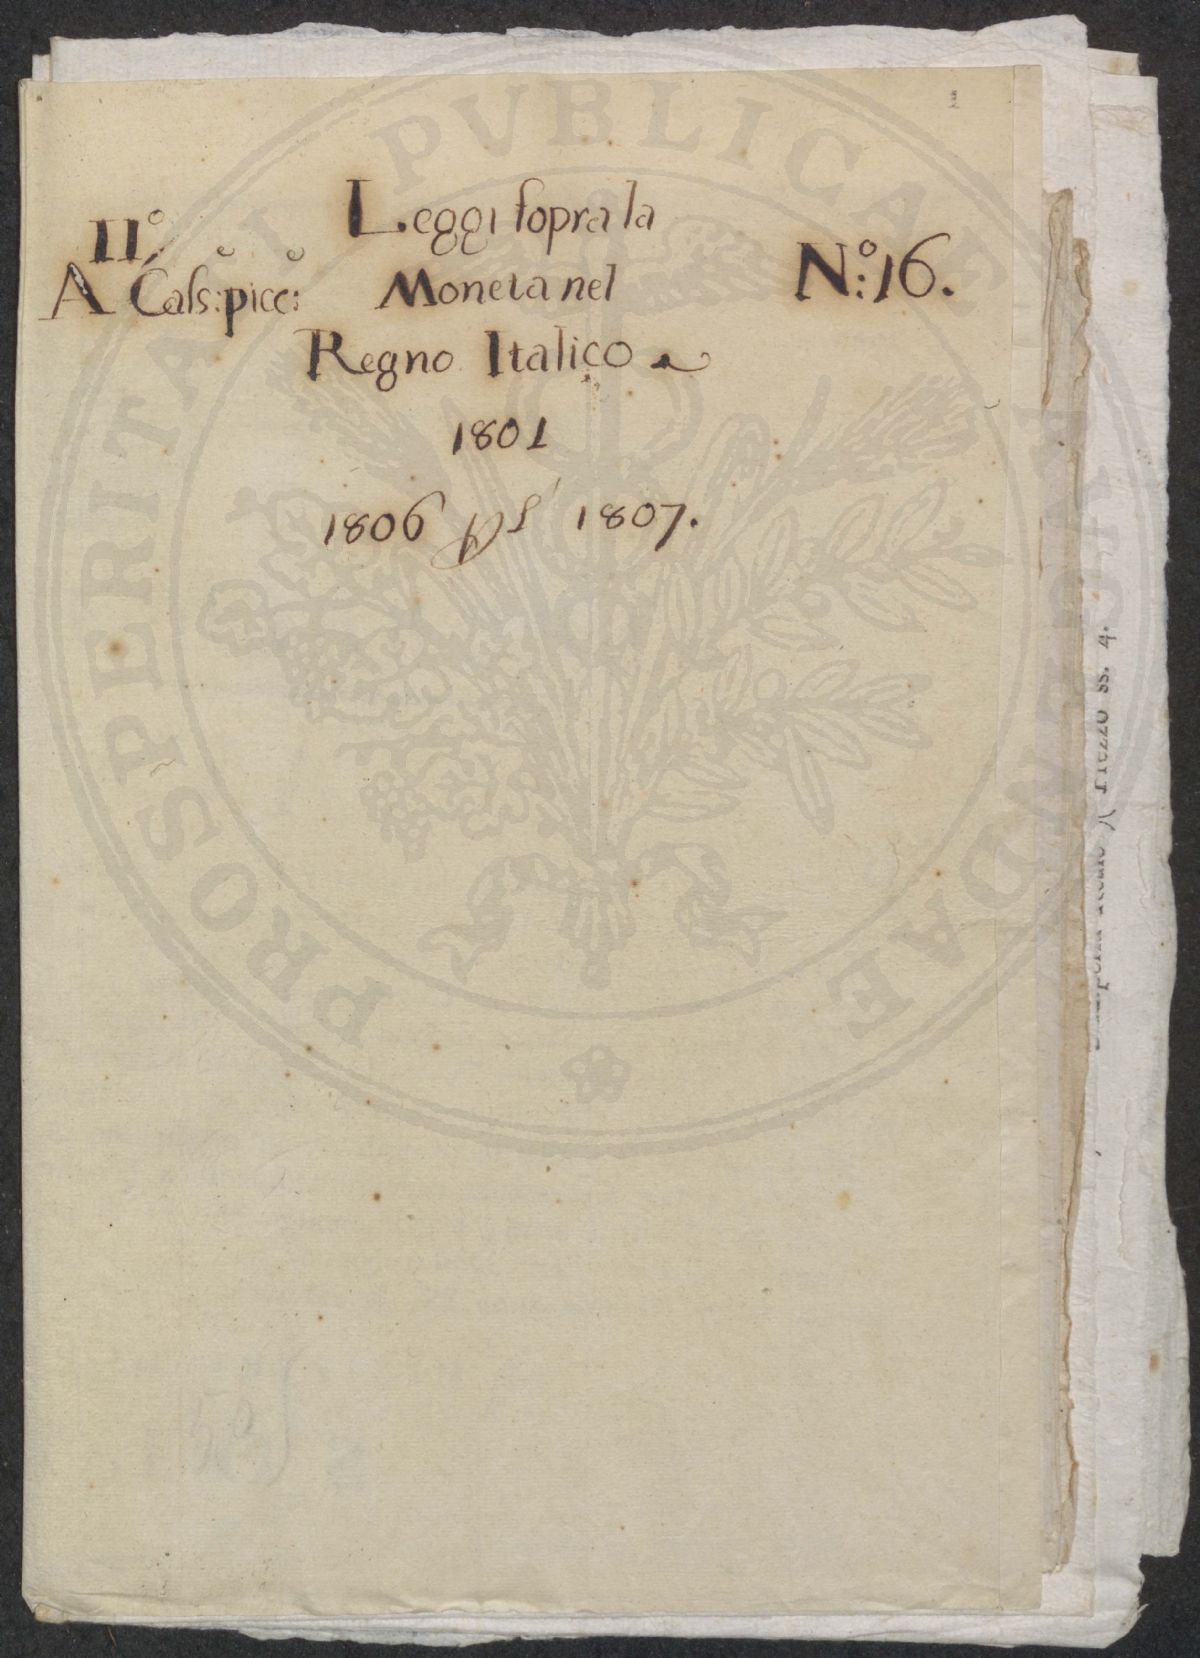 1
II.º
A Cass: picc:
Leggi sopra la
Moneta nel
Regno Italico
N.º: 16.
1801
1806 1807.
Prezzo ss. 4.
PROSPERITATI PVBLICAE AVGENDAE